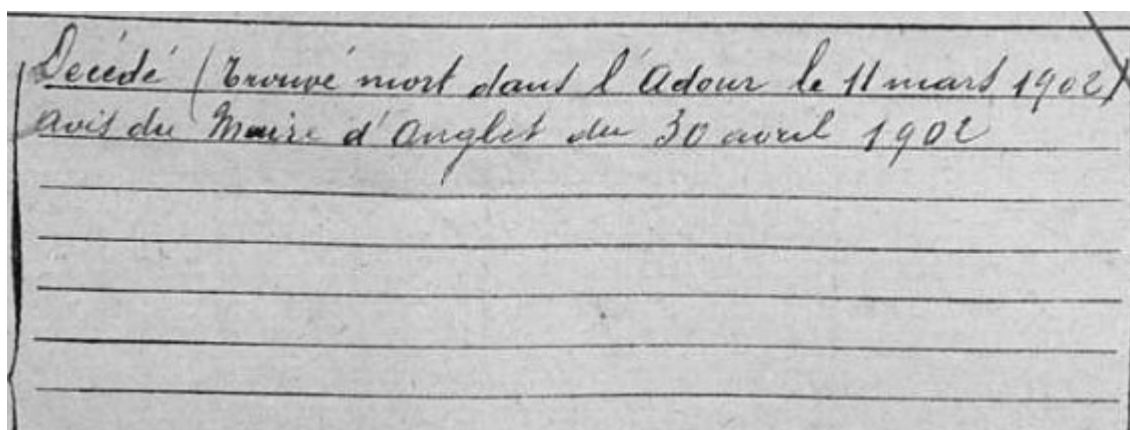 Décédé (trouvé mort dans l'Adour le 11 mars 1902)
avis du Maire d'Anglet du 30 avril 1902